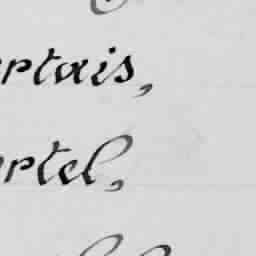 rtais,
rtel,